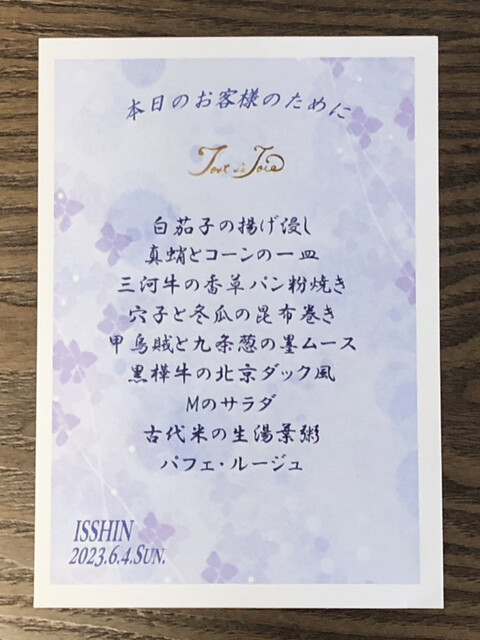 本日のお客様のために
Tout de Joie
白茄子の揚げ浸し
真蛸とコーンの一皿
三河牛の香草パン粉焼き
穴子と冬瓜の昆布巻き
甲烏賊と九条葱の墨ムース
黒樺牛の北京ダック風
Mのサラダ
古代米の生湯葉粥
パフェ・ルージュ
ISSHIN
2023.6.4.SUN.